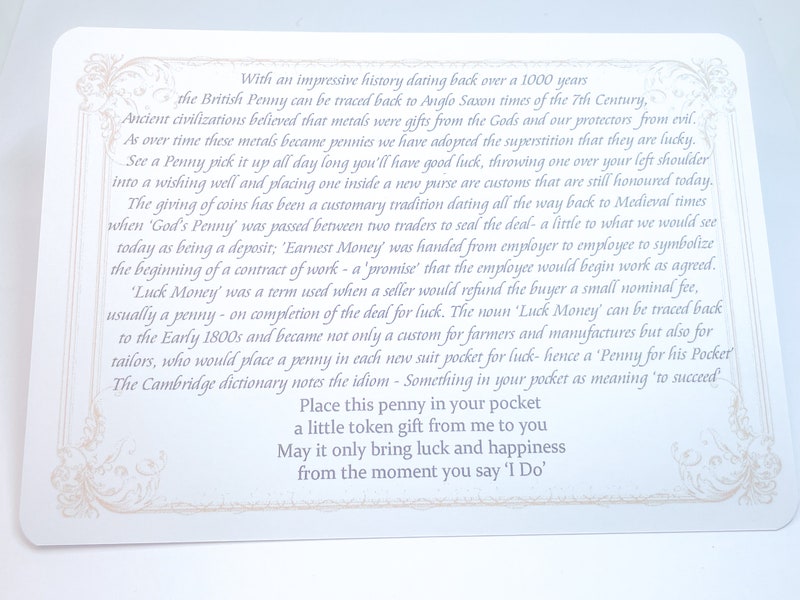 With an impressive history dating back over a 1000 years
the British Penny can be traced back to Anglo Saxon times of the 7th Century,
Ancient civilizations believed that metals were gifts from the Gods and our protectors from evil.
As over time these metals became pennies we have adopted the superstition that they are lucky.
See a Penny pick it up all day long you'll have good luck, throwing one over your left shoulder
into a wishing well and placing one inside a new purse are customs that are still honoured today.
The giving of coins has been a customary tradition dating all the way back to Medieval times
when 'God's Penny' was passed between two traders to seal the deal- a little to what we would see
today as being a deposit; 'Earnest Money' was handed from employer to employee to symbolize
the beginning of a contract of work - a 'promise' that the employee would begin work as agreed.
'Luck Money' was a term used when a seller would refund the buyer a small nominal fee,
usually a penny - on completion of the deal for luck. The noun 'Luck Money' can be traced back
to the Early 1800s and became not only a custom for farmers and manufactures but also for
tailors, who would place a penny in each new suit pocket for luck- hence a 'Penny for his Pocket'
The Cambridge dictionary notes the idiom - Something in your pocket as meaning 'to succeed'
Place this penny in your pocket
a little token gift from me to you
May it only bring luck and happiness
from the moment you say 'I Do'